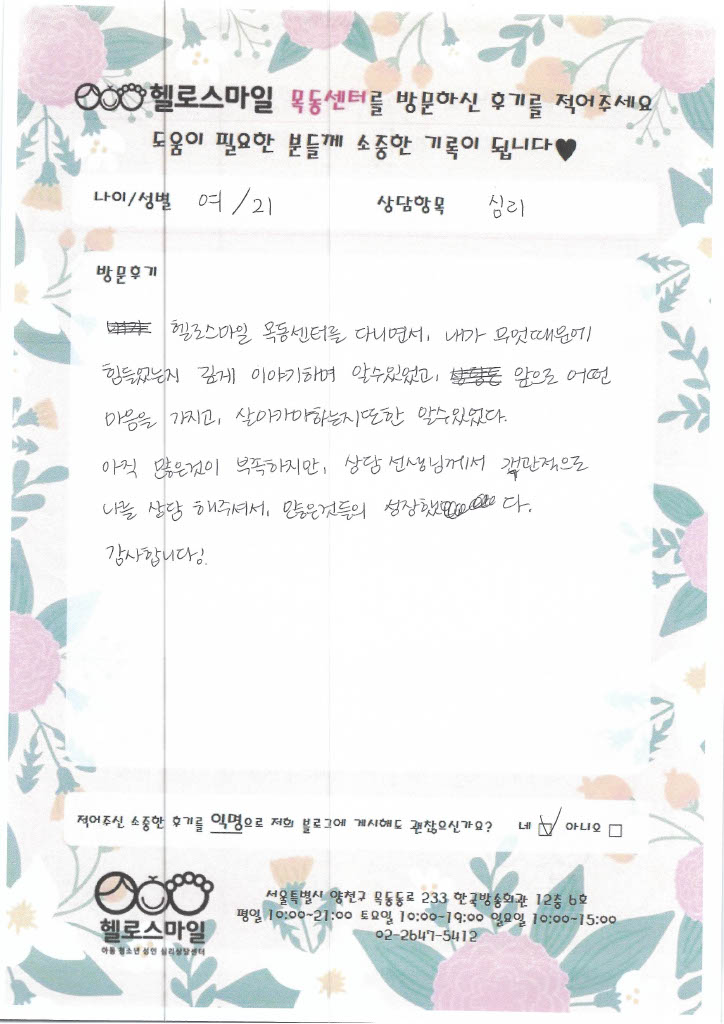 헬로스마일 목동센터를 방문하신 후기를 적어주세요
도움이 필요한 분들께 소중한 기록이 됩니다♥
나이/성별 여/21 상담항목 심리
방문후기
헬로스마일 목동센터를 다니면서, 내가 무엇때문에
힘들었는지 깊게 이야기하며 알수있었고, 앞으로 어떤
마음을 가지고, 살아가야하는지또한 알수있었다.
아직 많은것이 부족하지만, 상담 선생님께서 객관적으로
나를 상담 해주셔서, 많은것들의 성장했다.
감사합니다!
적어주신 소중한 후기를 익명으로 저희 블로그에 게시해도 괜찮으신가요? 네 ☑ 아니오 □
헬로스마일
아동 청소년 성인 심리상담센터
서울특별시 양천구 목동동로 233 한국방송회관 12층 6호
평일 10:00-21:00 토요일 10:00-19:00 일요일 10:00-15:00
02-2647-5412